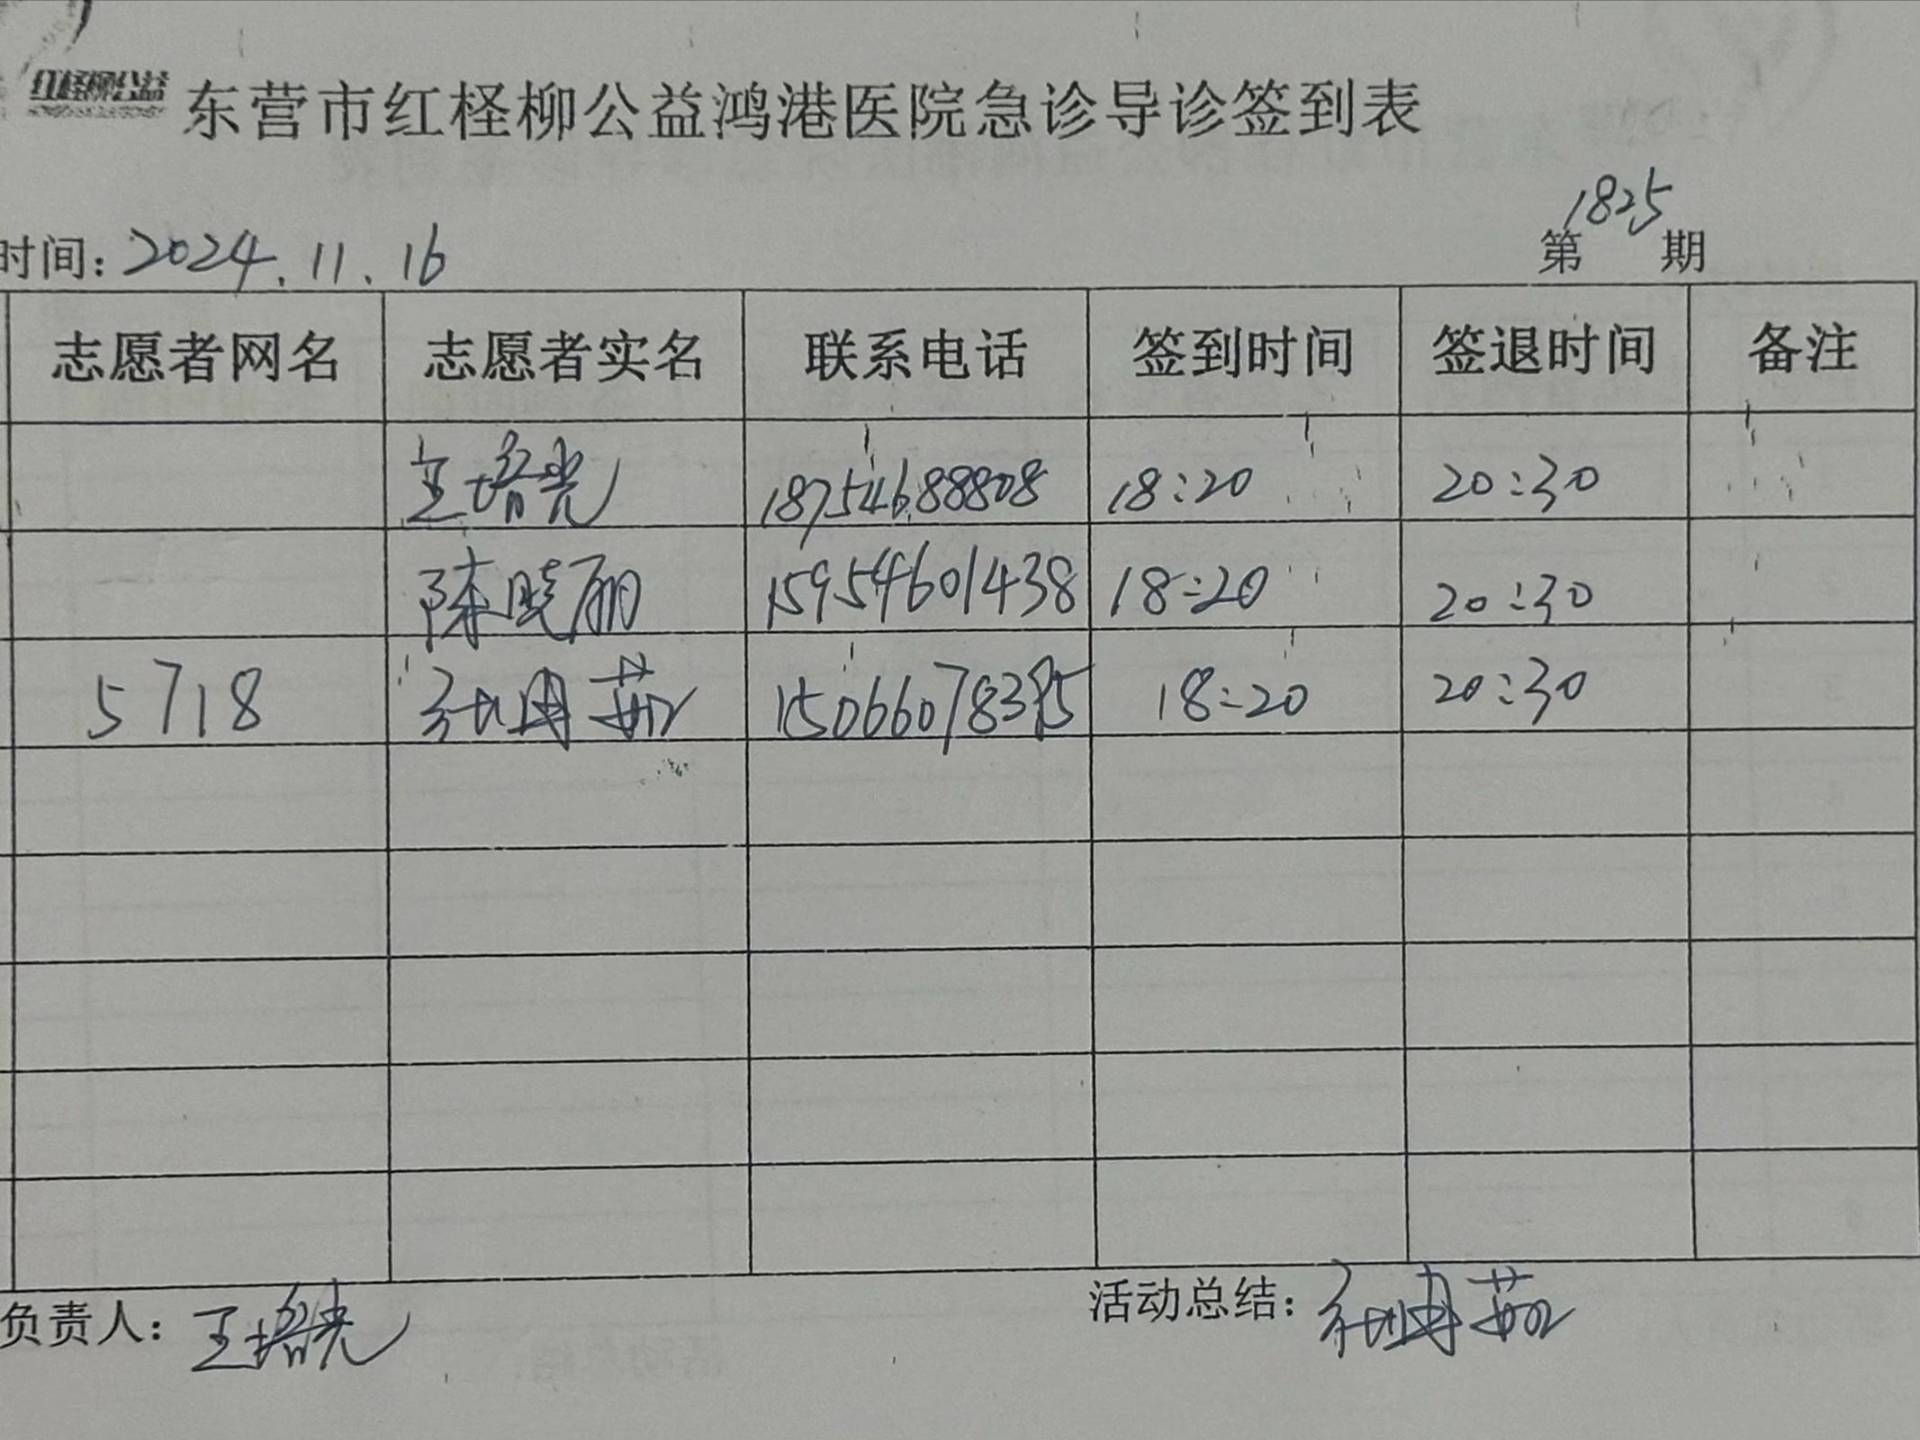 红柽柳公益 东营市红柽柳公益鸿港医院急诊导诊签到表
时间：2024.11.16 第1825期
志愿者网名 志愿者实名 联系电话 签到时间 签退时间 备注
王培光 18754688808 18:20 20:30
陈晓丽 15954601438 18:20 20:30
5718 18:20 20:30
负责人：王培光 活动总结：